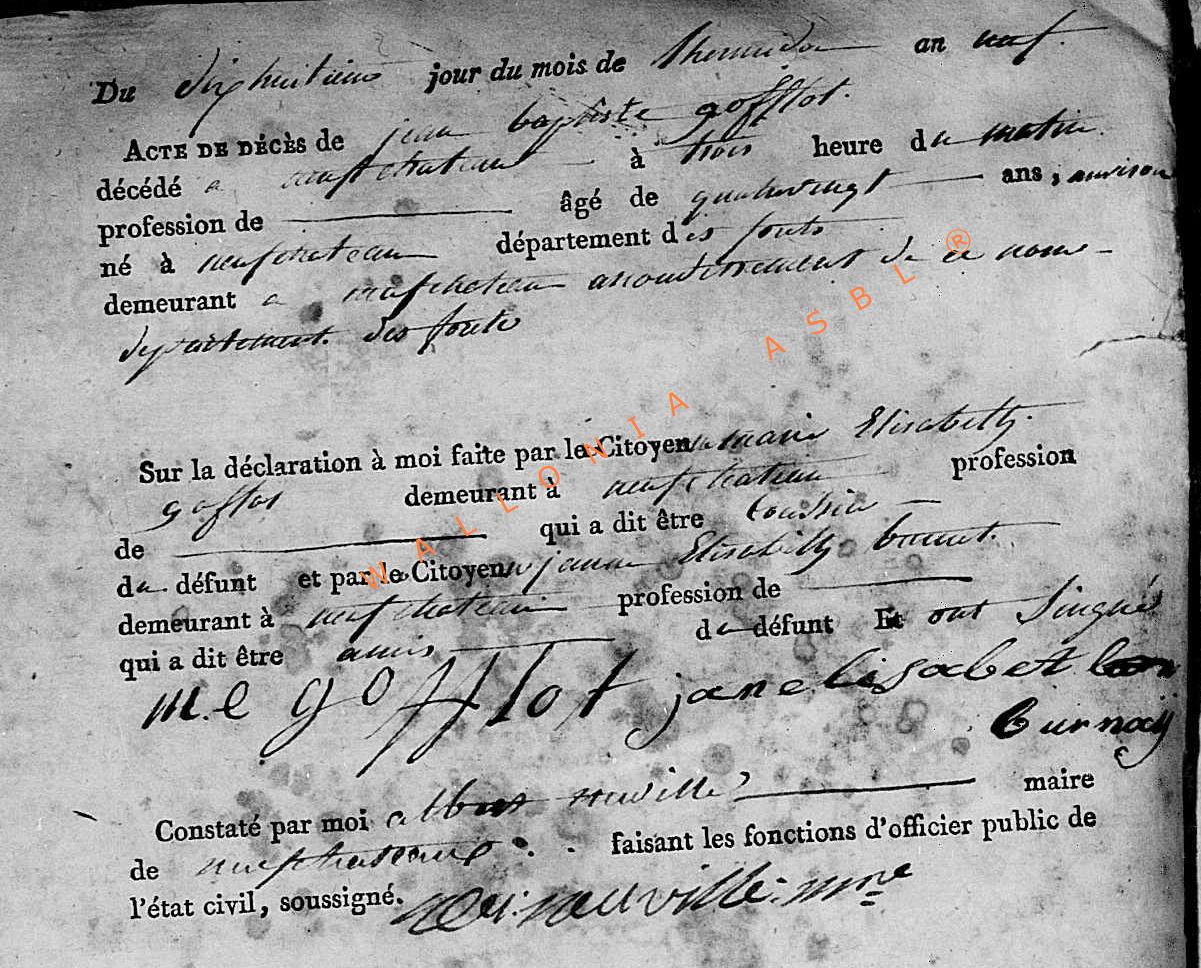 Du dixhuitieme jour du mois de Thermidor an neuf.
ACTE DE DÉCÈS de jean baptiste gofflot.
décédé a neufchateau à trois heure du matin
profession de âgé de quatrevingt ans, environ
né à neufchateau département des forêts
demeurant a neufchateau arondissement de ce nom
departement des forêts
Sur la déclaration à moi faite par la Citoyenne marie Elisabeth
gofflot demeurant à neufchateau profession
de qui a dit être
du défunt et par la Citoyenne jeanne Elisabeth
demeurant à neufchateau profession de
qui a dit être amis du défunt Et ont Singné
m.e gofflot jane lisabet
burnay
Constaté par moi neuville maire
de neufchateau faisant les fonctions d'officier public de
l'état civil, soussigné. neuville mre
WALLONIA ASBL ®